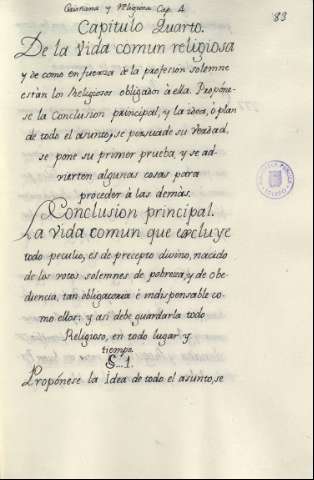 Cristiana y Religiosa Cap. 4
83
Capitulo Quarto.
De la Vida comun religiosa
y de como en fuerza de la profesion solemne
estan los Religiosos obligados à ella. Propóne-
se la Conclusion principal, y la idea, ò plan
de todo el asunto, se persuade su Verdad,
se pone su primer prueba, y se ad-
vierten algunas cosas para
proceder à las demas.
Conclusion principal.
La Vida comun que excluye
todo peculio, es de precepto divino, nacido
de los votos solemnes de pobreza, y de obe-
diencia, tan obligatoria è indispensable co-
mo ellos: y asi debe guardarla todo
Religioso, en todo lugar y
tiempo.
§. 1.
Propónese la Idea de todo el asunto, se